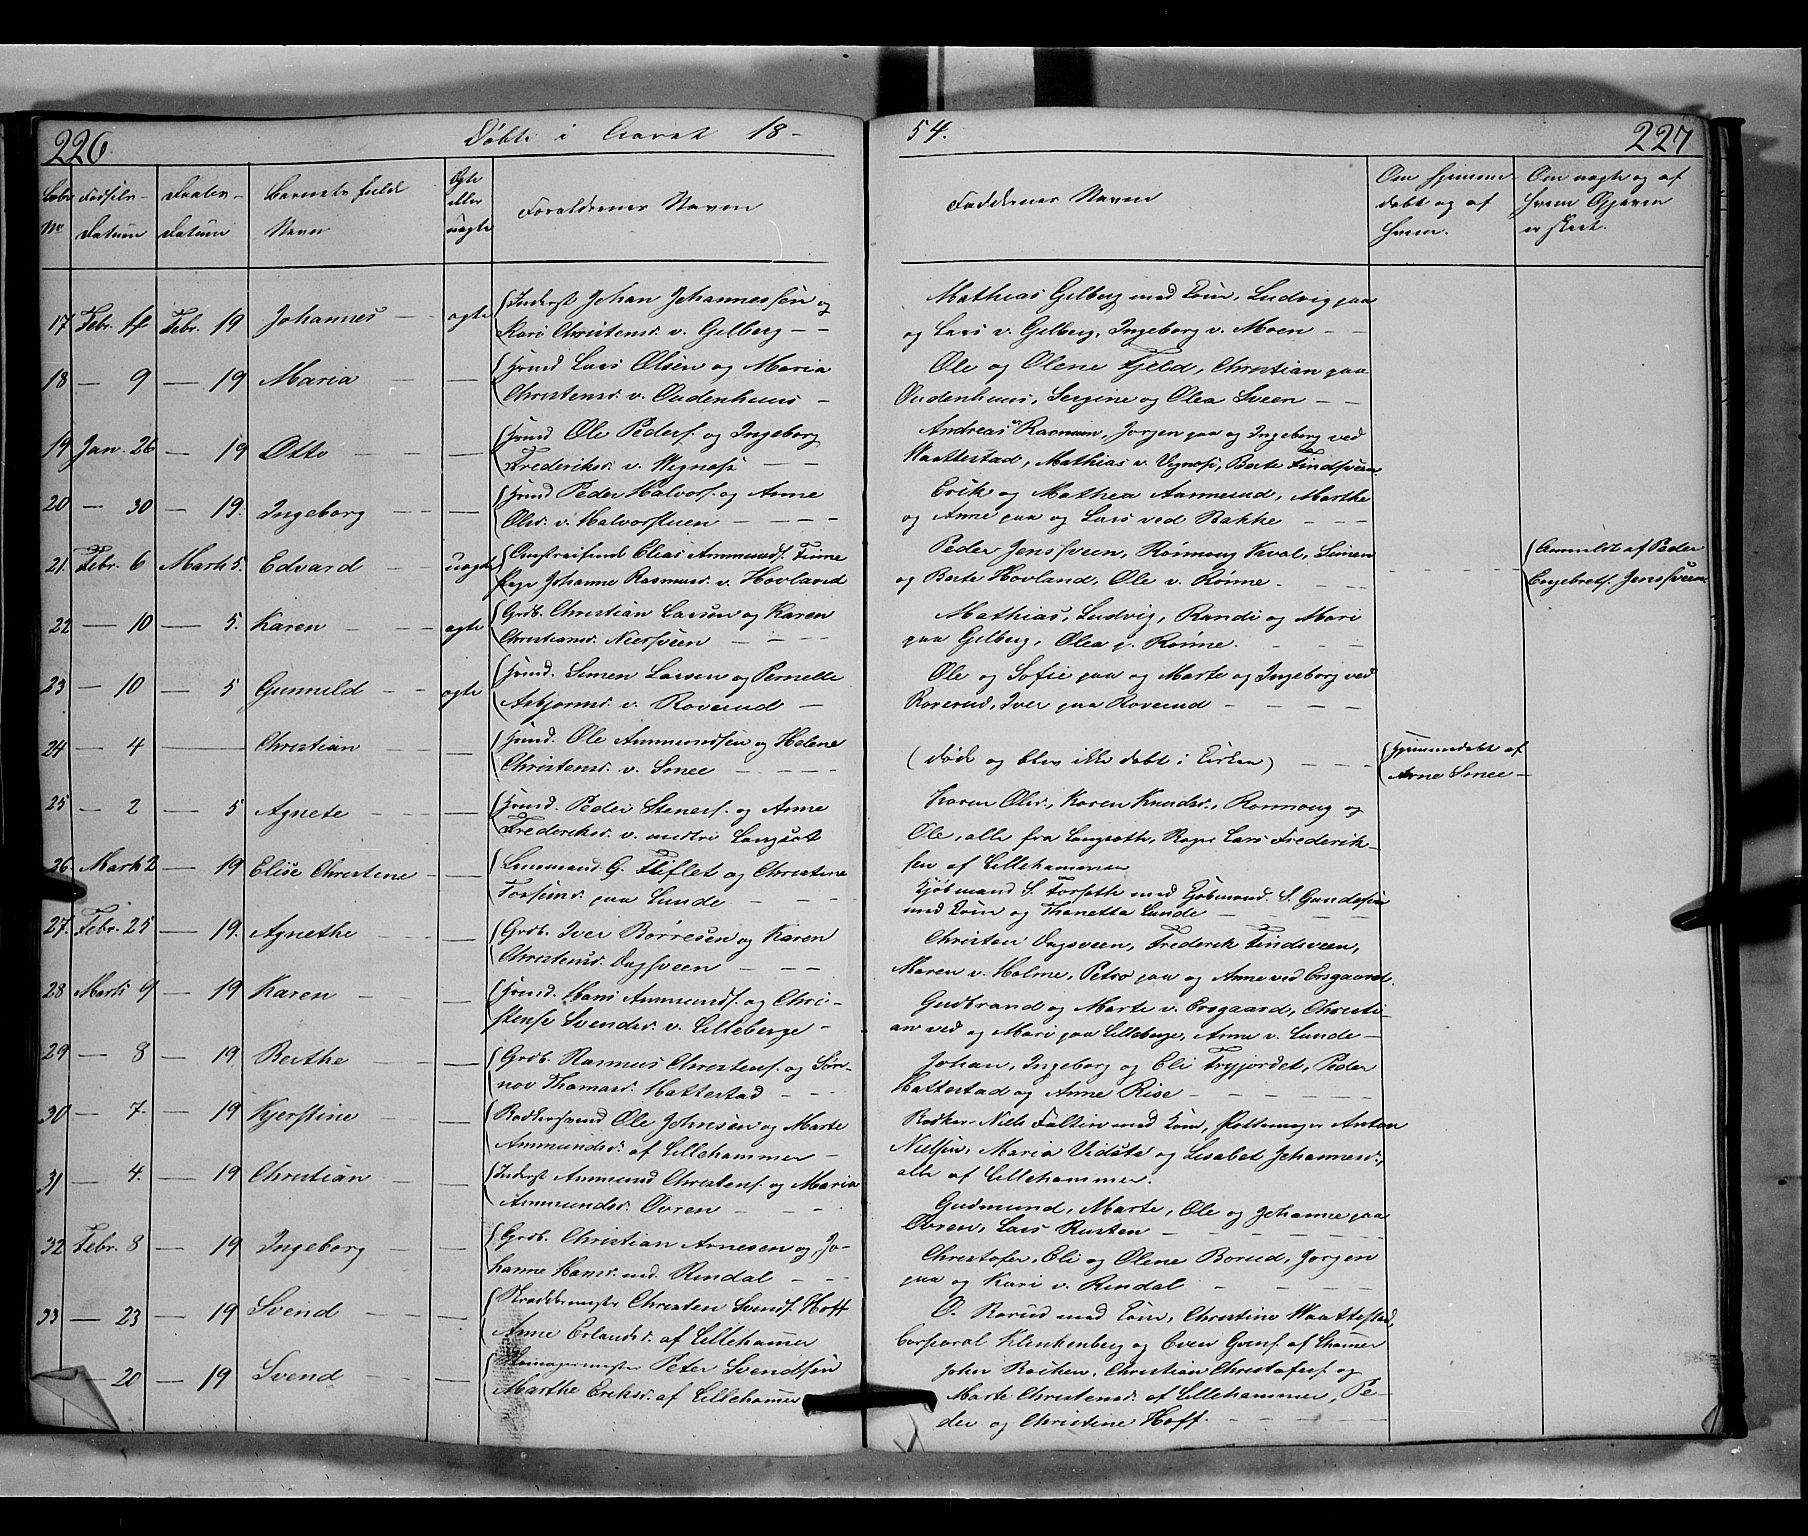 226 Døbte i Aaret 18-
54. 227
Løbe No Fødsels- Datum Daabs- Datum Barnets fulde Navn Ægte eller uægte Forældrenes Navne
Faddernes Navne Om hjemmedøbt og af hvem. Om uægte og af hvem Opgaven er skeet.
17 Febr. 4 Febr. 19 Johannes ægte Inderst Johan Johannessen og
Kari Christensd. v. Gilberg
Mathias Gilberg med Kone, Ludvig paa
og Lars v. Gilberg, Ingeborg v. Moen
18 - 9 - 19 Maria - Huusd Lars Olsen og Maria
Christensd. v. Oudenhuus
Ole og Olene Fjeld, Christian paa
Oudenhuus, Sergine og Olea Sveen
19 Jan. 26 - 19 Otto - Huusd Ole Peders. og Ingeborg
Frederiksd. v. Vignæss
Andreas Rasmusn, Jørgen paa og Ingeborg ved
Haattestad, Mathias v. Vignæss, Berte Findsveen
20 - 30 - 19. Ingeborg - Huusd Peder Halvors. og Anne
Olsd. v. Halvorstuen
Erik og Mathea Aamerud, Marthe
og Anne paa og Lars ved Bakke
21. Febr. 6 Marts 5. Edvard uægte Omstreifende Elias Ammunds. Finne
Pige Johanne Rasmusd. v. Hovland
Peder Jenssveen, Rønnoug Kval, Simen
og Berte Hovland, Ole v. Rønne
Anmeldt af Peder
Engebrets. Jenssveen
22 - 10 - 5. Karen ægte Grdb. Christian Larsen og Karen
Christiansd. Niersveen
Mathias, Ludvig, Randi og Mari
paa Gilberg, Olea p. Rønne.
23 - 10 - 5 Gunnild ægte Huusd. Simen Larsen og Pernelle
Asbjørnsd. v. Roverud
Ole og Sofie paa og Marte og Ingeborg ved
Roverud, Iver paa Roverud
24 - 4 Christian - Huusd. Ole Ammundsen og Helene
Christensd. v. Smee
(døde og blev ikke døbt i Kirken)
Hjemmedøbt af
Arne Smee
25 - 2 - 5 Agnete - Huusd. Peder Steners. og Anne
Frederiksd. v. nedre Langset
Karen Olsd., Karen Knudsd., Rønnoug og
Ole, alle fra Langseth, Lars Frederik-
sen af Lillehammer
26. Marts 2 - 19 Elise Christine - Lensmand G. Fliflet og Christine
Torsensd. paa Lunde
Kjøbmand S. Forseth med Kjøbmand. S. Gundersen
med Kone og Thanetta Lunde
27. Febr. 25 - 19. Agnethe - Grdb. Iver Børresen og Karen
Christensd. Dagsveen
Christen Dagsveen, Frederik Findsveen,
Maren v. Holme, Petro paa og Anne ved Ersgaard.
28 Marts 9 - 19 Karen - Huusd. Hans Ammunds. og Chri-
stense Svendsd. v. Lilleberge
Gudbrand og Marte v. Ersgaard, Christi-
an ved og Mari paa Lilleberge, Anne v. Lunde
29 - 8 - 19. Berthe - Grdb. Rasmus Christens. og Søn-
nov Thomasd. Hattestad
Johan, Ingeborg og Eli Fryjordet, Peder
Hattestad og Anne Rise
30 - 7. - 19 Kjerstine - Bødkersvend Ole Johnsen og Marte
Ammundsd. af Lillehammer
Bødker Niels Faltin med Kone, Pottemager Anton
Nielsen, Maria Vidste og Lisabet Johannesd.,
alle af Lillehammer.
31 - 4. - 19 Christian - Inderst Ammund Christens. og Maria
Ammundsd. Ovren
Gudmund, Marte, Ole og Johanne paa
Ovren, Lars Rusten
32 Febr. 8 - 19 Ingeborg - Grdb. Christian Arnesen og Jo-
hanne Hansd. ned. Rindal
Christofer, Eli og Olene Borud, Jørgen
paa og Kari v. Rindal
33 - 23 - 19 Svend - Skræddermester Christen Svends. Hoff
Anne Erlandsd. af Lillehammer
O. Borud med Kone, Christine Haattestad,
Corporal Klinkenberg og Even Grens. af Lhammer
- 20 - 19 Svend - Peter Svendsen
Marthe Eriksd. af Lillehammer
John Bachen, Christian Christofers. og
Marte Christensd. af Lillehammer, Pe-
der og Christine Hoff.